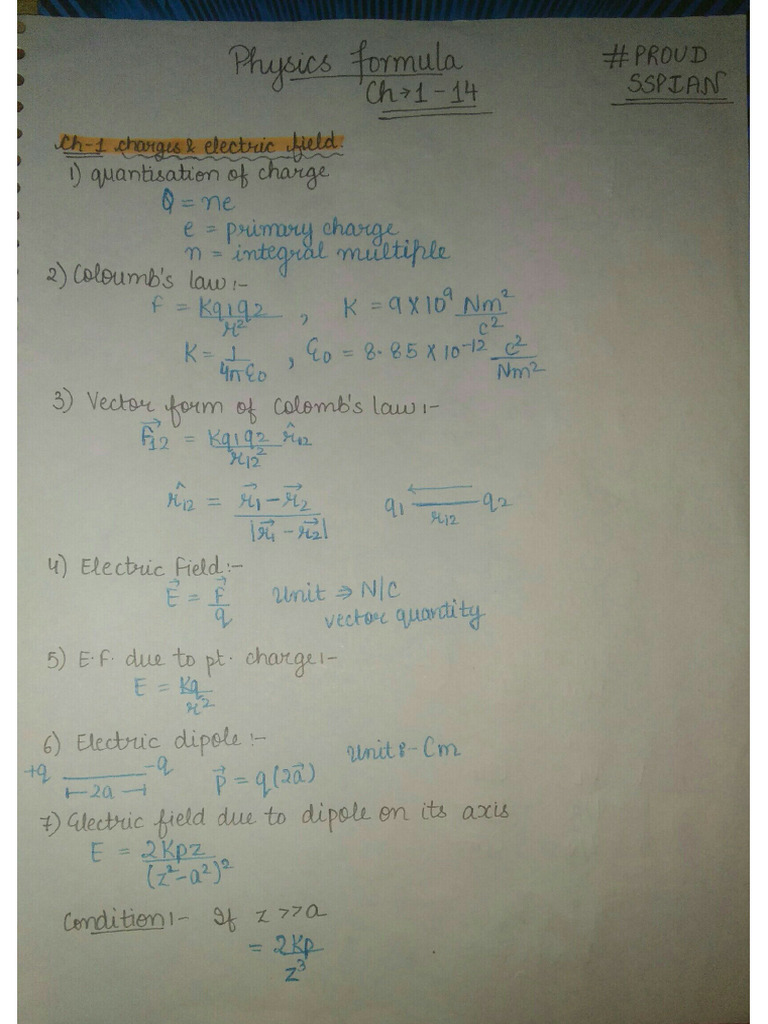 Physics formula
Ch→1-14
#PROUD
SSPIAN
Ch-1 charges & electric field.
1) quantisation of charge
Q = ne
e = primary charge
n = integral multiple
2) Coloumb's law :-
F = Kq1q2/r² , K = 9×10⁹ Nm²/c²
K = 1/4πε0 , ε0 = 8.85×10⁻¹² c²/Nm²
3) Vector form of Colomb's law :-
F⃗12 = Kq1q2/r12² r̂12
r̂12 = r⃗1-r⃗2/|r⃗1-r⃗2| q1 ← q2
r12
4) Electric Field :-
E⃗ = F⃗/q Unit ⇒ N/C
vector quantity
5) E.F. due to pt. charge :-
E = Kq/r²
6) Electric dipole :- Unit :- Cm
+q -q p⃗ = q(2a⃗)
2a
7) Electric field due to dipole on its axis
E = 2Kpz/(z²-a²)²
Condition :- If z>>a
= 2Kp/z³